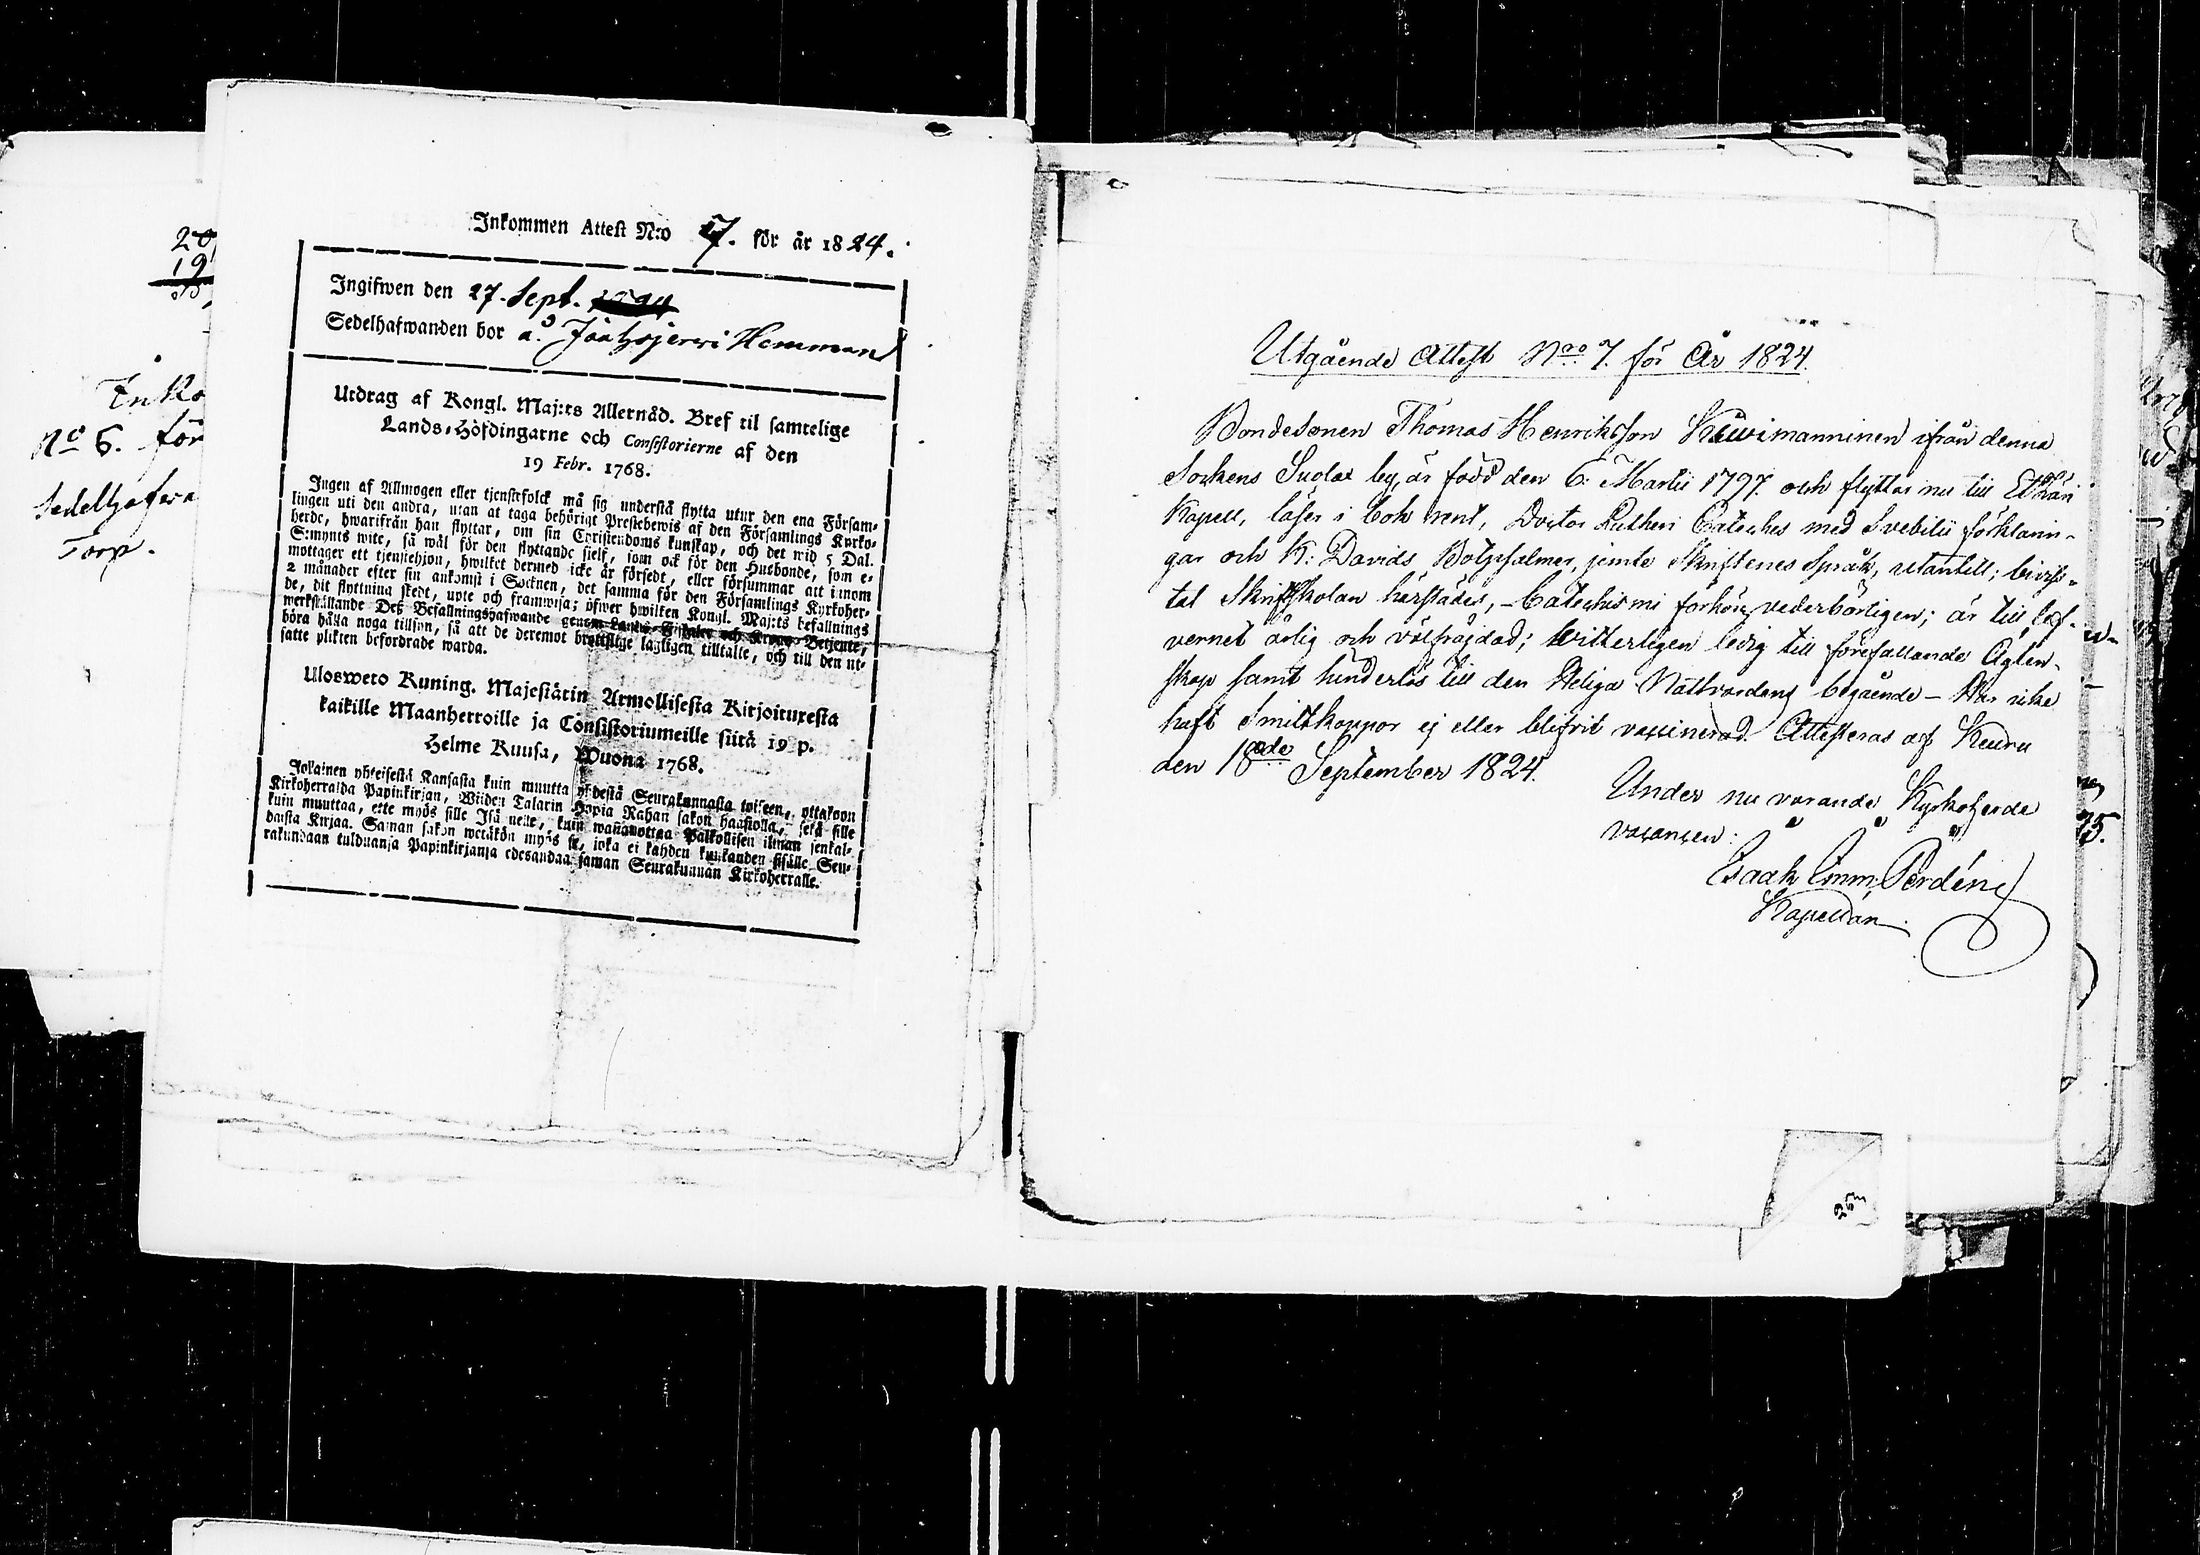 20
19
Inko
No 6. för
Sedelhafwa
Torp.
Inkommen Attest N:o 7. för år 1824.
Ingifwen den 27. Sept.
Sedelhafwanden bor å. Jäähzjerwi Hemman
Utdrag af Kongl. Maj:ts Allernåd. Bref til samtelige
Lands-Höfdingarne och Consistorierne af den
19 Febr. 1768.
Ingen af Allmogen eller tjenstefolck må sig understå flytta utur den ena Försam-
lingen uti den andra, utan at taga behörigt Prestebewis af den Församlings Kyrko-
herde, hwarifrån han flyttar, om sin Christendoms kunskap, och det wid 5 Dal.
S:mynts wite, så wäl för den flyttande sielf, som ock för den Husbonde, som e-
mottager ett tjenstehjon, hwilket dermed icke är försedt, eller försummar att innom
2 månader efter sin ankomst i Socknen, det samma för den Församlings Kyrkoher-
de, dit flyttning skedt, upte och framwisa; öfwer hwilken Kongl. Maj:ts befallnings
werkställande Deß Befallningshafwande genom Lands-Fiskaler och Krono-Betjente,
böra hålla noga tillsyn, så att de deremot brottslige lagligen tilltalte, och till den ut-
satte plikten befordrade warda.
Ulosweto Kuning. Majestätin Armollisesta Kirjoituxesta
kaikille Maanherroille ja Consistoriumeille siitä 19 p.
Helme Kuusa, Wuona 1768.
Jokainen yhteisestä Kansasta kuin muutta yhdestä Seurakunnasta toiseen, ottakoon
Kirkoherralda Papinkirjan, Wiiden Talarin Hopia Rahan sakon haastolla, sekä sille
kuin muuttaa, ette myös sille Isä nelle, kuin wastaanottaa Palkollisen ilman senkal-
daista Kirjaa. Saman sakon wetäkön myös se, joka ei kahden kuukauden sisälle Seu-
rakundaan tulduansa Papinkirjansa edesandaa saman Seurakunnan Kirkoherralle.
Utgående Attest Nro 7. för År 1824.
Bondesonen Thomas Henriksson Kiiwimanninen ifrån denna
Sockens Suolax by, är född den 6. Martii 1797. och flyttar nu till Etsäri
Kapell, läser i bok rent, Doctor Lutheri Cateches med Svebilii förklarin-
gar och K: Davids Botpsalmer, jemte Skriftenes Språk, utantill; bivis-
tat Skriftskolan härstädes, – Catechismi förhör vederbörligen; är till lef-
vernet ärlig och välfräjdad; witterligen ledig till förefallande Ägten-
skap samt hinderlös till den Heliga Nattvardens begående – Har icke
haft Smittkoppor ej eller blifvit vaccinerad. Attesteras af Keuru
den 18de September 1824.
Under nu varande Kyrkoherde
vacancen:
Esaak Emm. Perdén
Kapellan.
25.